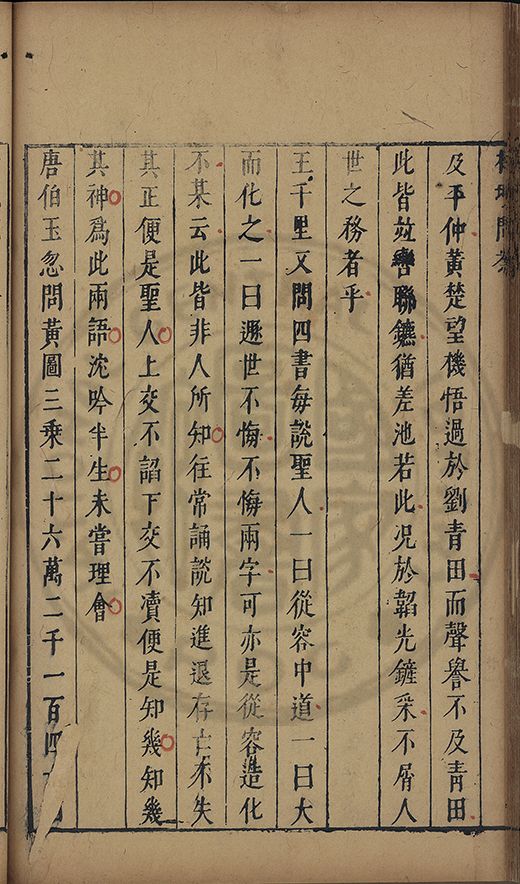 榕壇問答
及平仲黃楚望機悟過於劉青田而聲譽不及青田
此皆竝轡聯鑣猶差池若此况於韜光鏟采不屑人
世之務者乎
王千里又問四書每說聖人一曰從容中道一曰大
而化之一曰遯世不悔不悔兩字可亦是從容造化
不某云此皆非人所知往常誦說知進退存亡不失
其正便是聖人上交不諂下交不瀆便是知幾知幾
其神爲此兩語沈吟半生未嘗理會
唐伯玉忽問黃圖三乘二十六萬二千一百四